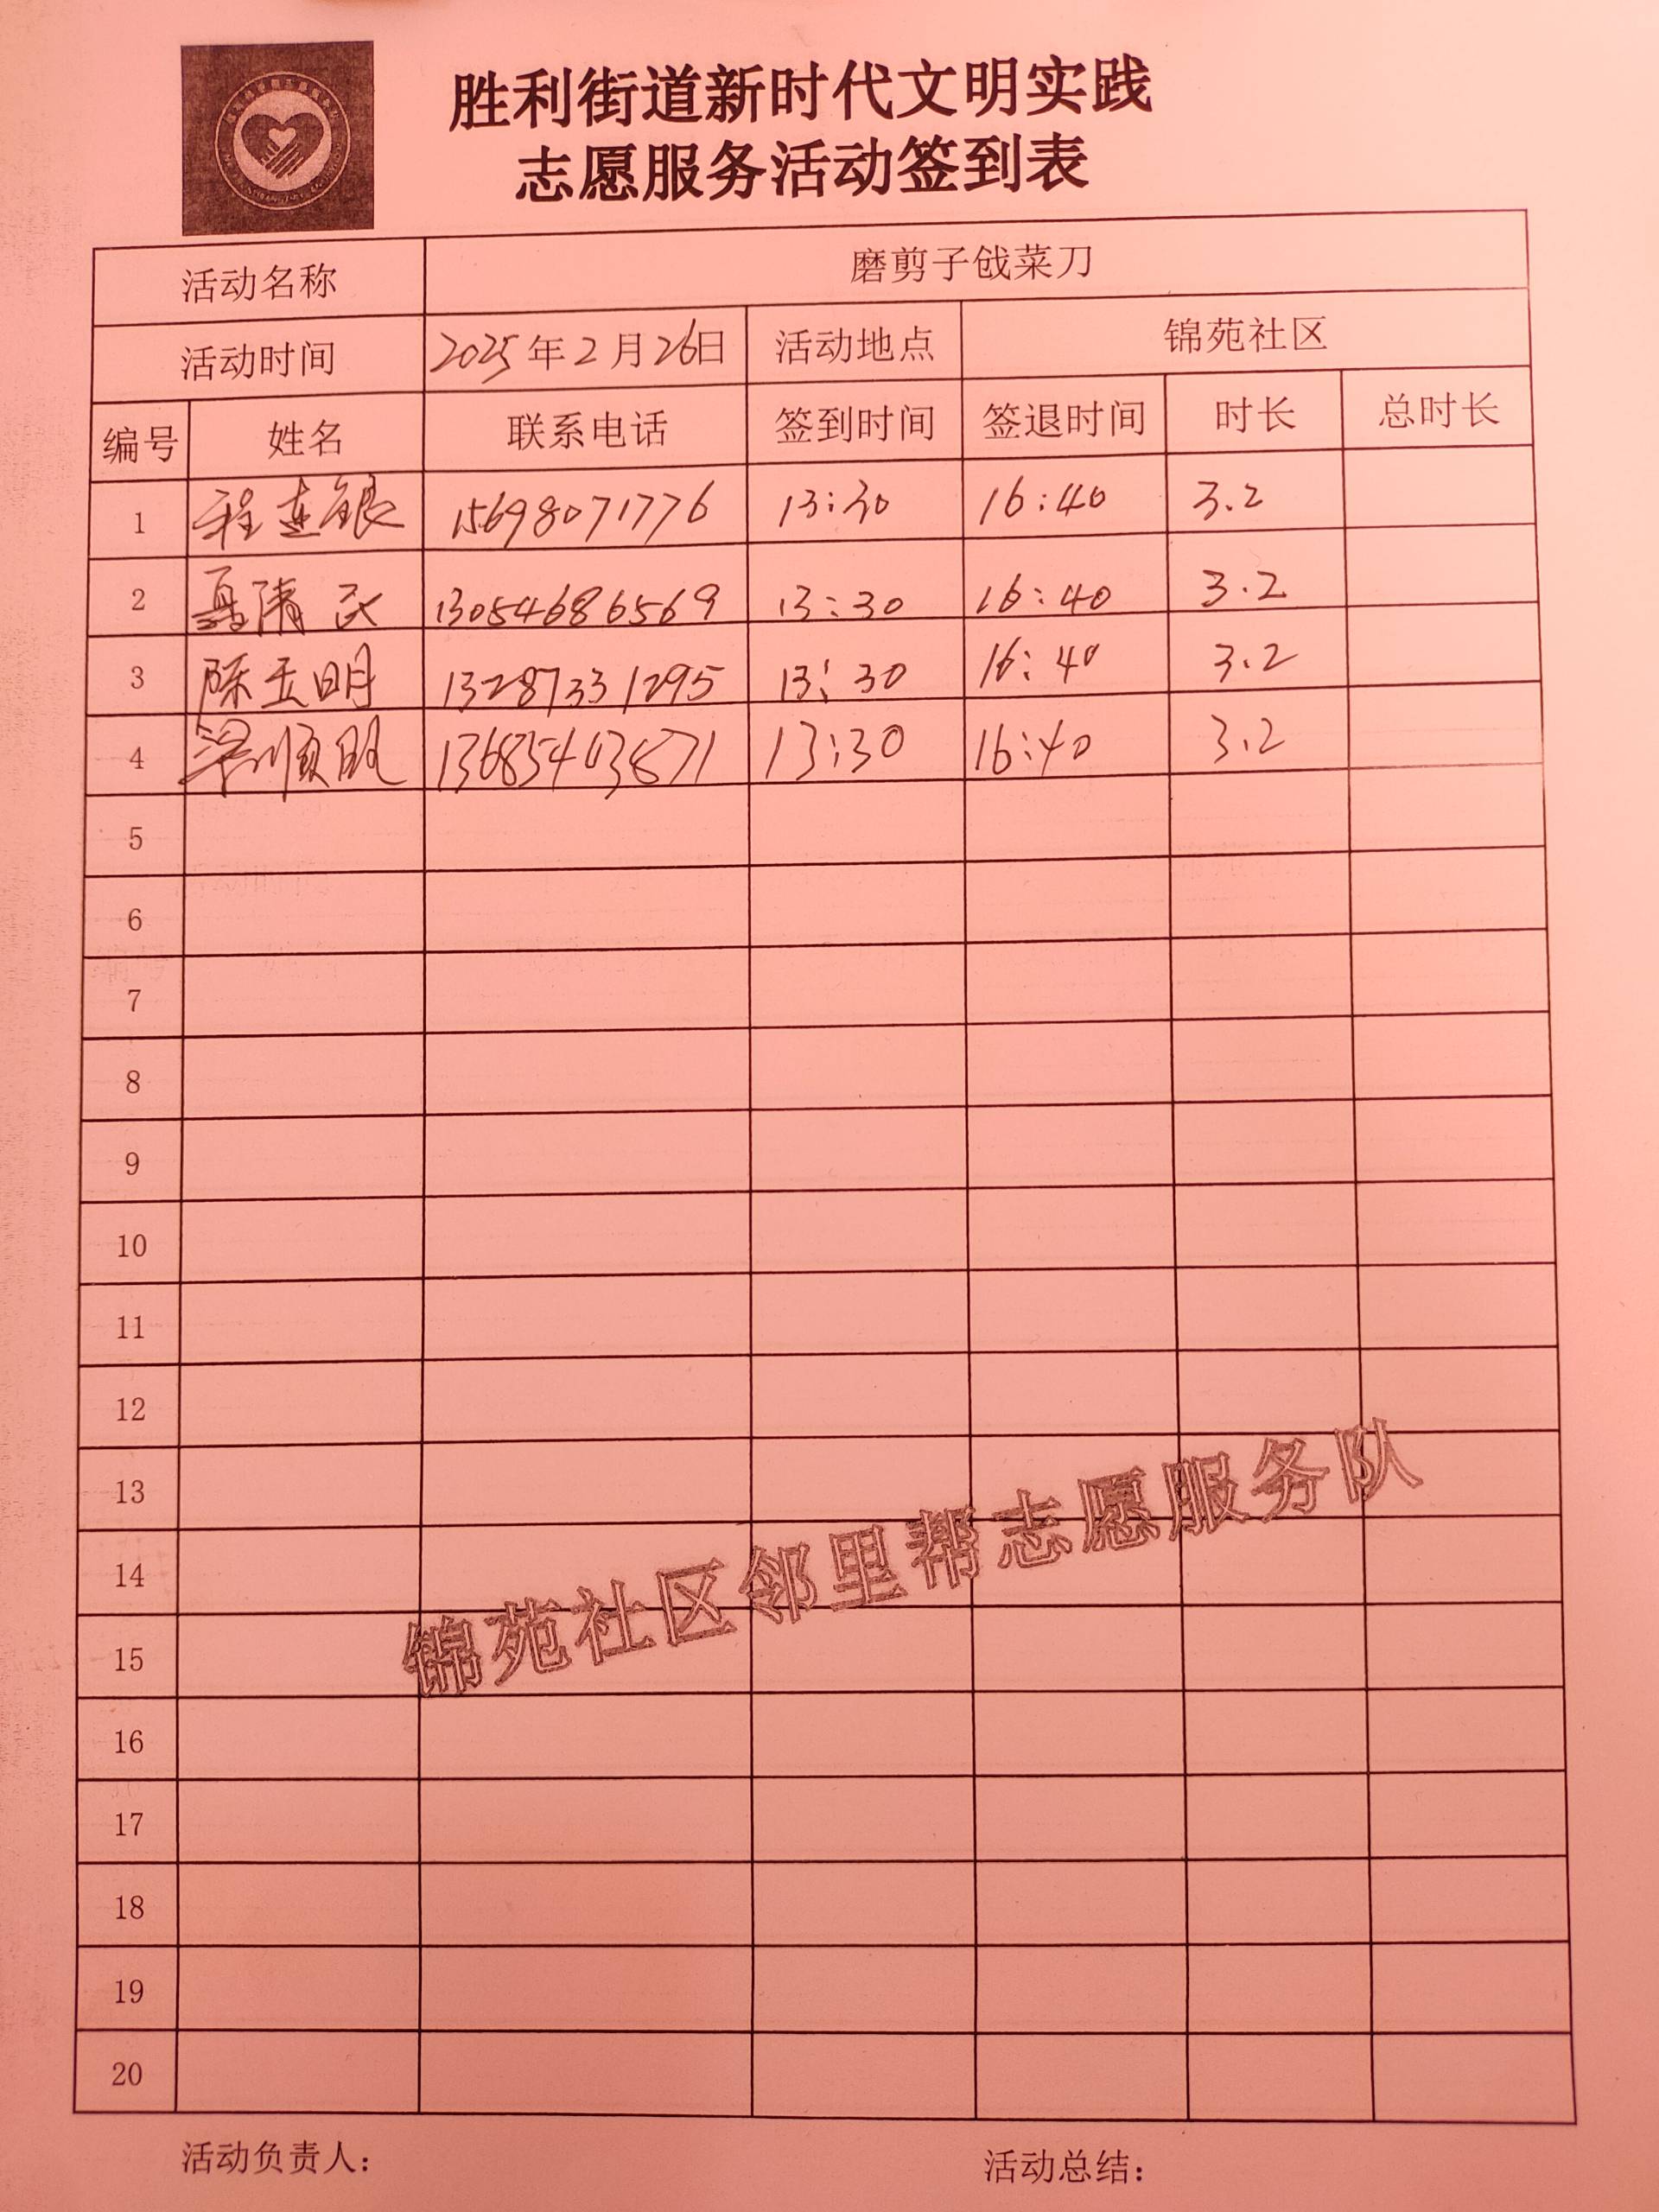 胜利街道新时代文明实践
志愿服务活动签到表
活动名称 磨剪子戗菜刀
活动时间 2025年2月26日 活动地点 锦苑社区
编号 姓名 联系电话 签到时间 签退时间 时长 总时长
1 程连银 15698071776 13:30 16:40 3.2
2 聂清民 13054686569 13:30 16:40 3.2
3 陈玉明 13287331295 13:30 16:40 3.2
4 梁顺明 13:30 16:40 3.2
5
6
7
8
9
10
11
12
13
14
15
16
17
18
19
20
锦苑社区邻里帮志愿服务队
活动负责人: 活动总结: